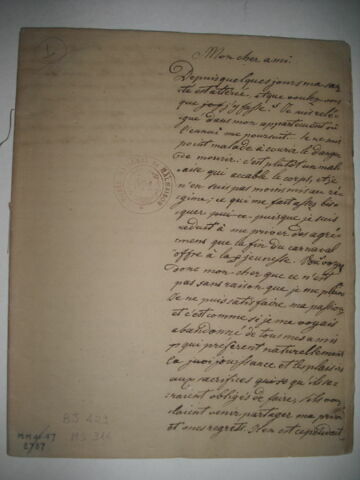 Mon cher ami.
Depuis quelques jours ma san-
té est altérée. Et que voulez-vous
que j'y fasse. Je suis relé-
gué dans mon appartement où
l'ennui me poursuit. Je ne suis
point malade à courir le danger
de mourir: c'est plutôt un mal-
aise qui accable le corps, et je
n'en suis pas moins mis au ré-
gime; ce qui me fait assez
puisque je suis
réduit à me priver des agré-
mens que la fin du carnaval
offre à la jeunesse.
donc mon cher que ce n'est
pas sans raison que je me plains
Je ne puis satisfaire ma passion
et c'est comme si je me voyais
abandonné de tous mes amis
qui préfèrent naturellement
la jouissance et les plaisirs
aux sacrifices qu'ils se-
raient obligés de faire, s'ils vou-
laient venir partager ma
et mes regrets. Il en est cependant
MALMAISON
BJ 423
MS 311
MM 40.47
8787